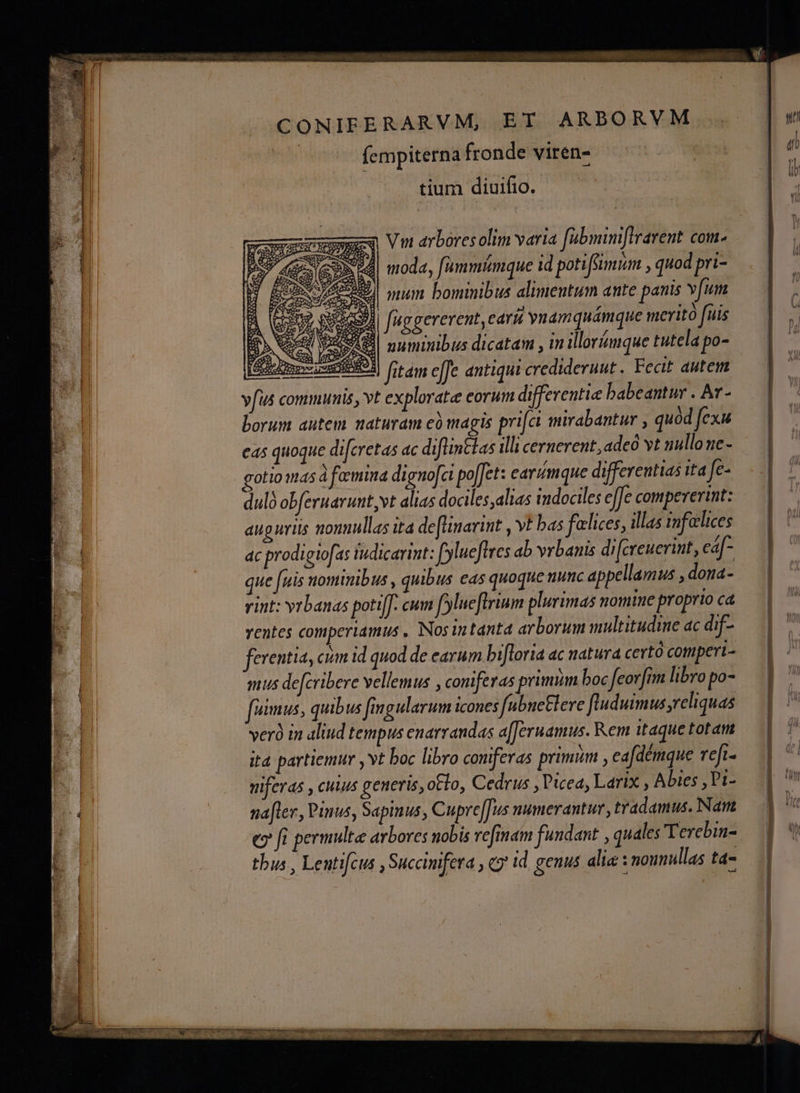 CONIFERARVM, ET ARBORVM
ſempiterna fronde viren-
tium diuiſio.
Vm arbores olim varia ſubminiſtrarent com-
moda, ſummúmque id potiſsimùm, quod pri-
mum hominibus alimentum ante panis vſum
ſuggererent, earū vnamquámque meritò ſuis
numinibus dicatam, in illorúmque tutela po-
ſitam eſſe antiqui crediderunt. Fecit autem
vſus communis, vt exploratæ eorum differentiæ habeantur. Ar-
borum autem naturam eò magis priſci mirabantur, quòd ſexu
eas quoque diſcretas ac diſtinctas illi cernerent, adeò vt nullo ne-
gotio mas à fœmina dignoſci poſſet: earúmque differentias ita ſe-
dulò obſeruarunt, vt alias dociles, alias indociles eſſe compererint:
auguriis nonnullas ita deſtinarint, vt has fœlices, illas infœlices
ac prodigioſas iudicarint: ſylueſtres ab vrbanis diſcreuerint, eáſ-
que ſuis nominibus, quibus eas quoque nunc appellamus, dona-
rint: vrbanas potiſſ. cum ſylueſtrium plurimas nomine proprio ca
rentes comperiamus. Nos in tanta arborum multitudine ac dif-
ferentia, cùm id quod de earum hiſtoria ac natura certò comperi-
mus deſcribere vellemus, coniferas primùm hoc ſeorſim libro po-
ſuimus, quibus ſingularum icones ſubnectere ſtuduimus, reliquas
verò in aliud tempus enarrandas aſſeruamus. Rem itaque totam
ita partiemur, vt hoc libro coniferas primùm, eaſdémque reſi-
niferas, cuius generis, octo, Cedrus, Picea, Larix, Abies, Pi-
naſter, Pinus, Sapinus, Cupreſſus numerantur, tradamus. Nam
& ſi permultæ arbores nobis reſinam fundant, quales Terebin-
thus, Lentiſcus, Succinifera, & id genus aliæ: nonnullas ta-